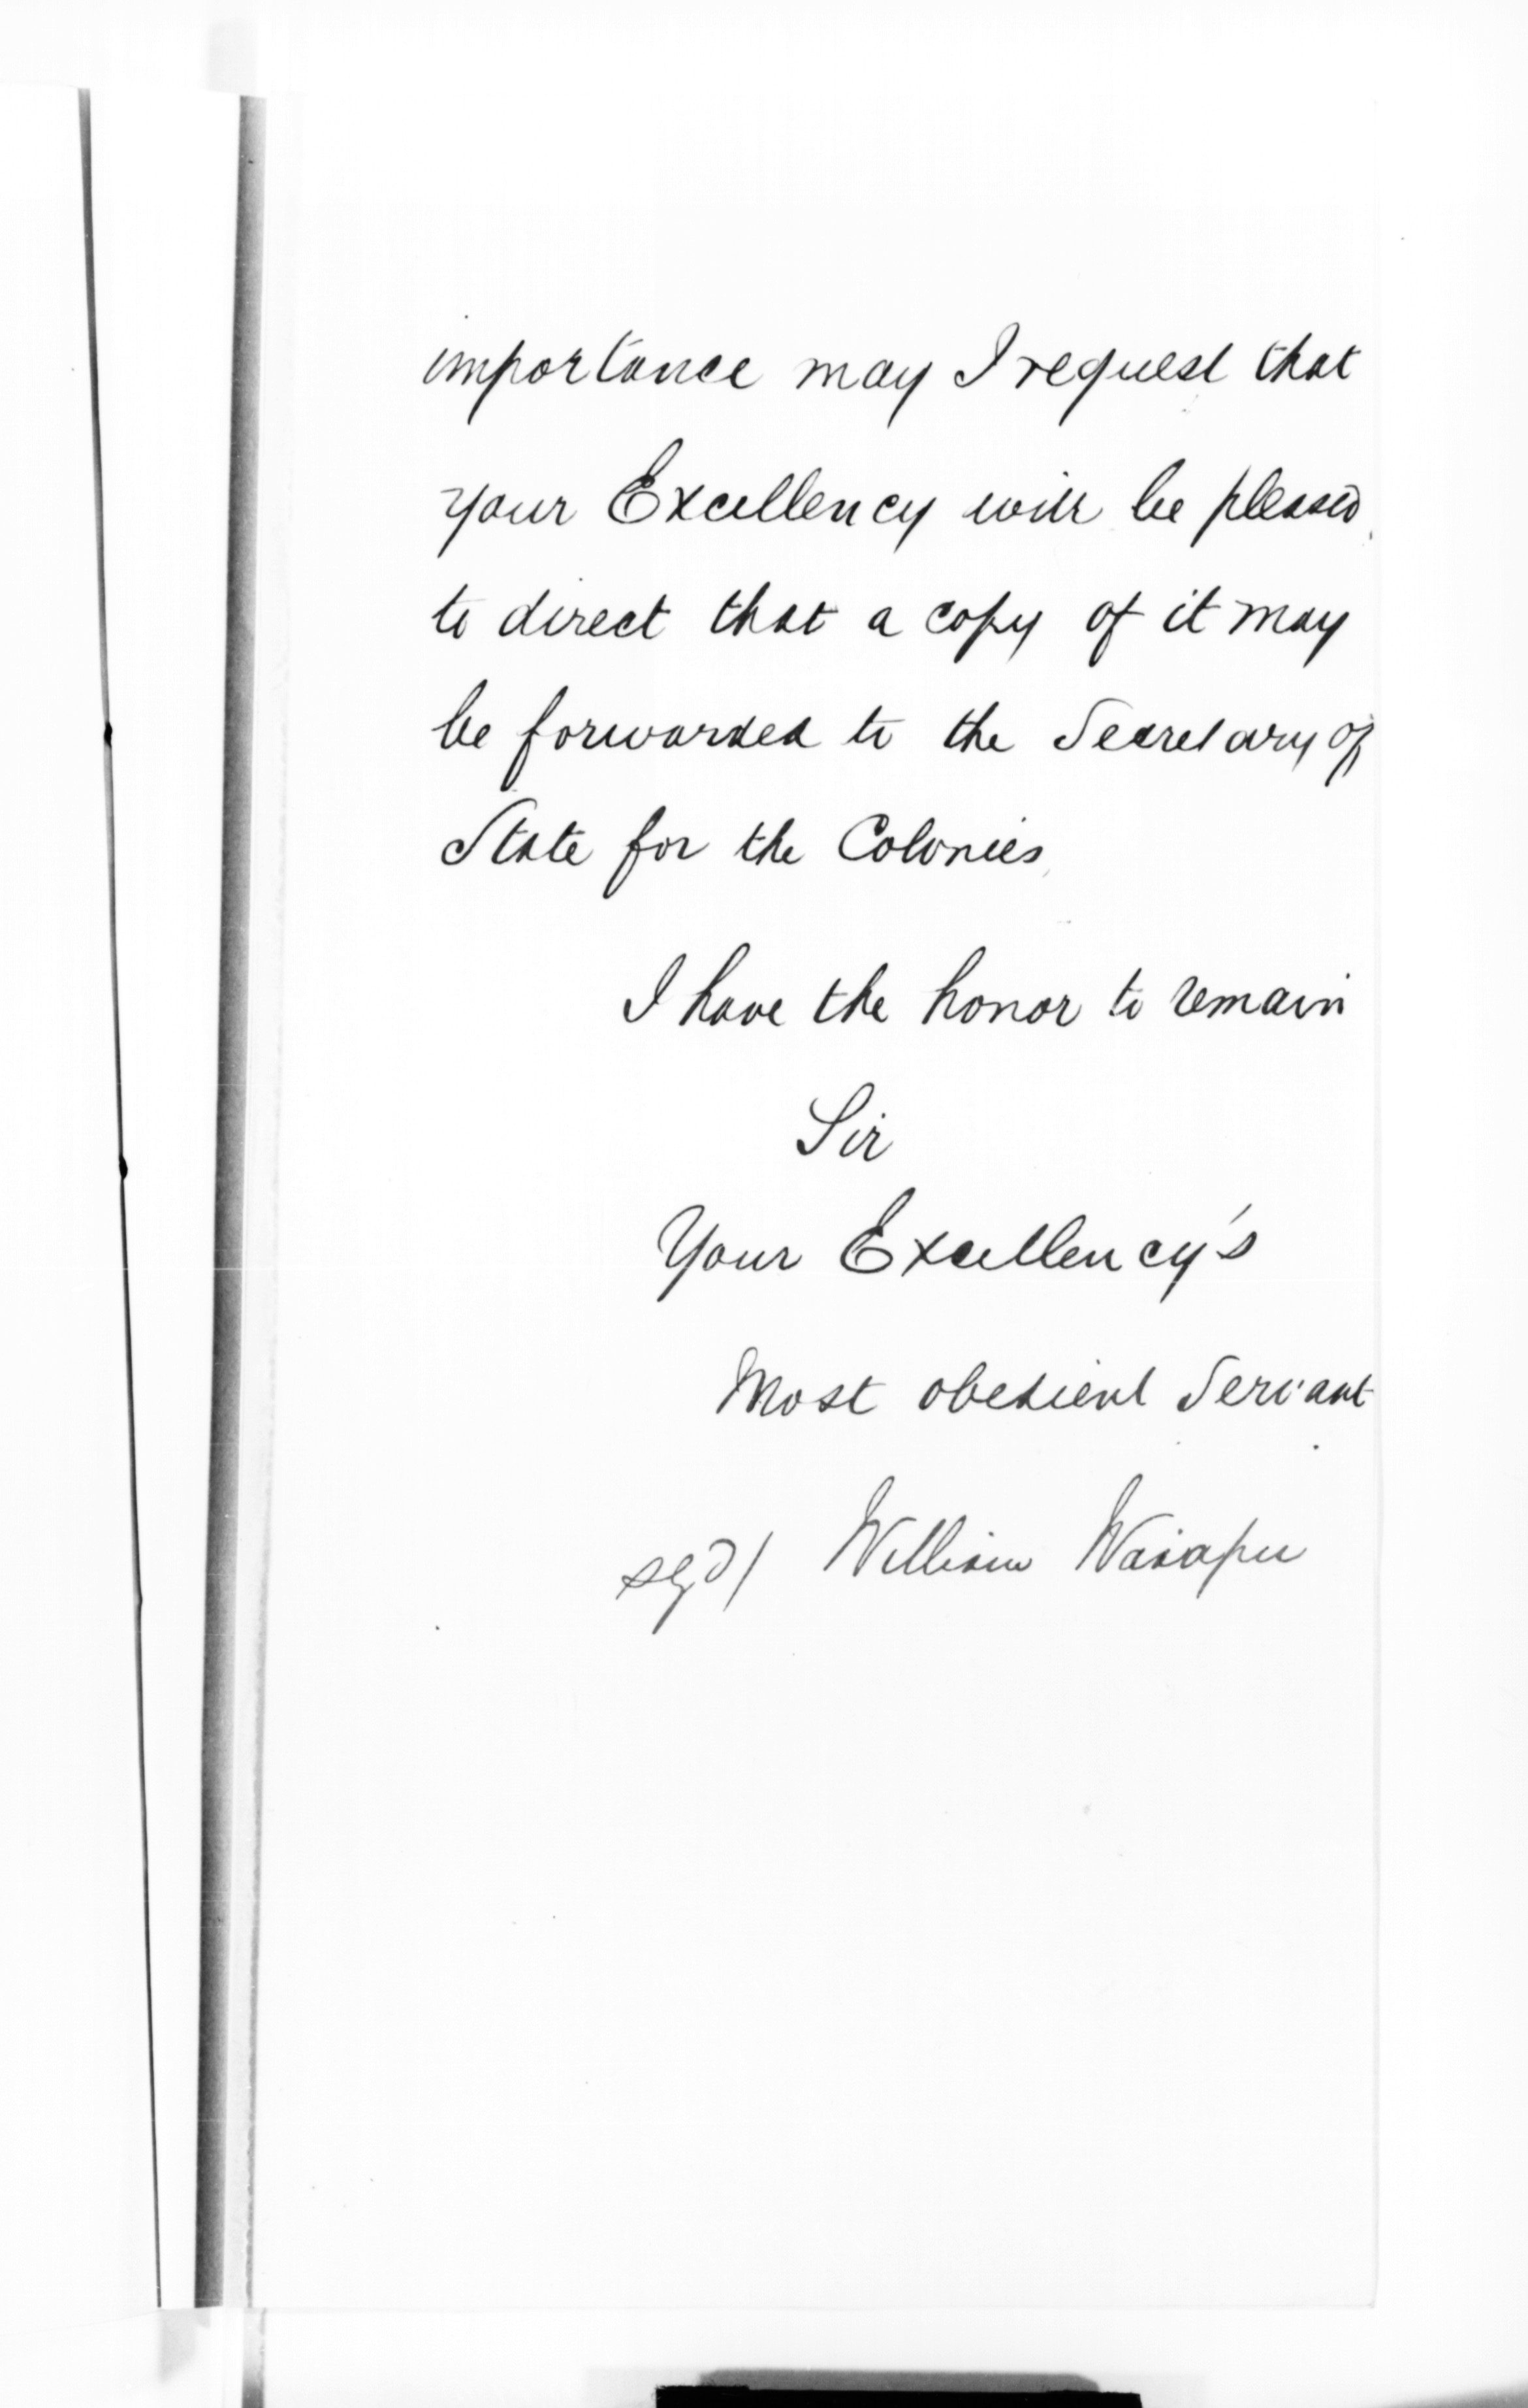 importance may I request that
your Excellency will be pleased
to direct that a copy of it may
be forwarded to the Secretary of
State for the Colonies
I have the honor to remain
Sir
Your Excellency's
Most obedient Servant
sgd/ William Waiapu